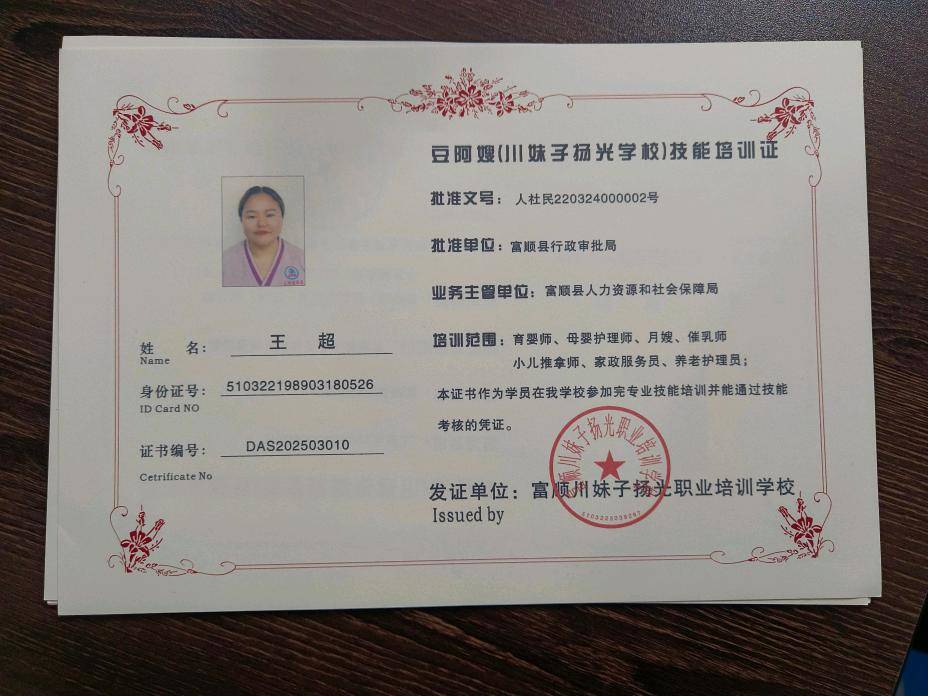 豆阿嫂(川妹子扬光学校)技能培训证
批准文号：人社民220324000002号
批准单位：富顺县行政审批局
业务主管单位：富顺县人力资源和社会保障局
培训范围：育婴师、母婴护理师、月嫂、催乳师
小儿推拿师、家政服务员、养老护理员；
本证书作为学员在我学校参加完专业技能培训并能通过技能
考核的凭证。
发证单位：富顺川妹子扬光职业培训学校
Issued by
姓 名：王 超
Name
身份证号：510322198903180526
ID Card NO
证书编号：DAS202503010
Cetrificate No
富顺川妹子扬光职业培训学校